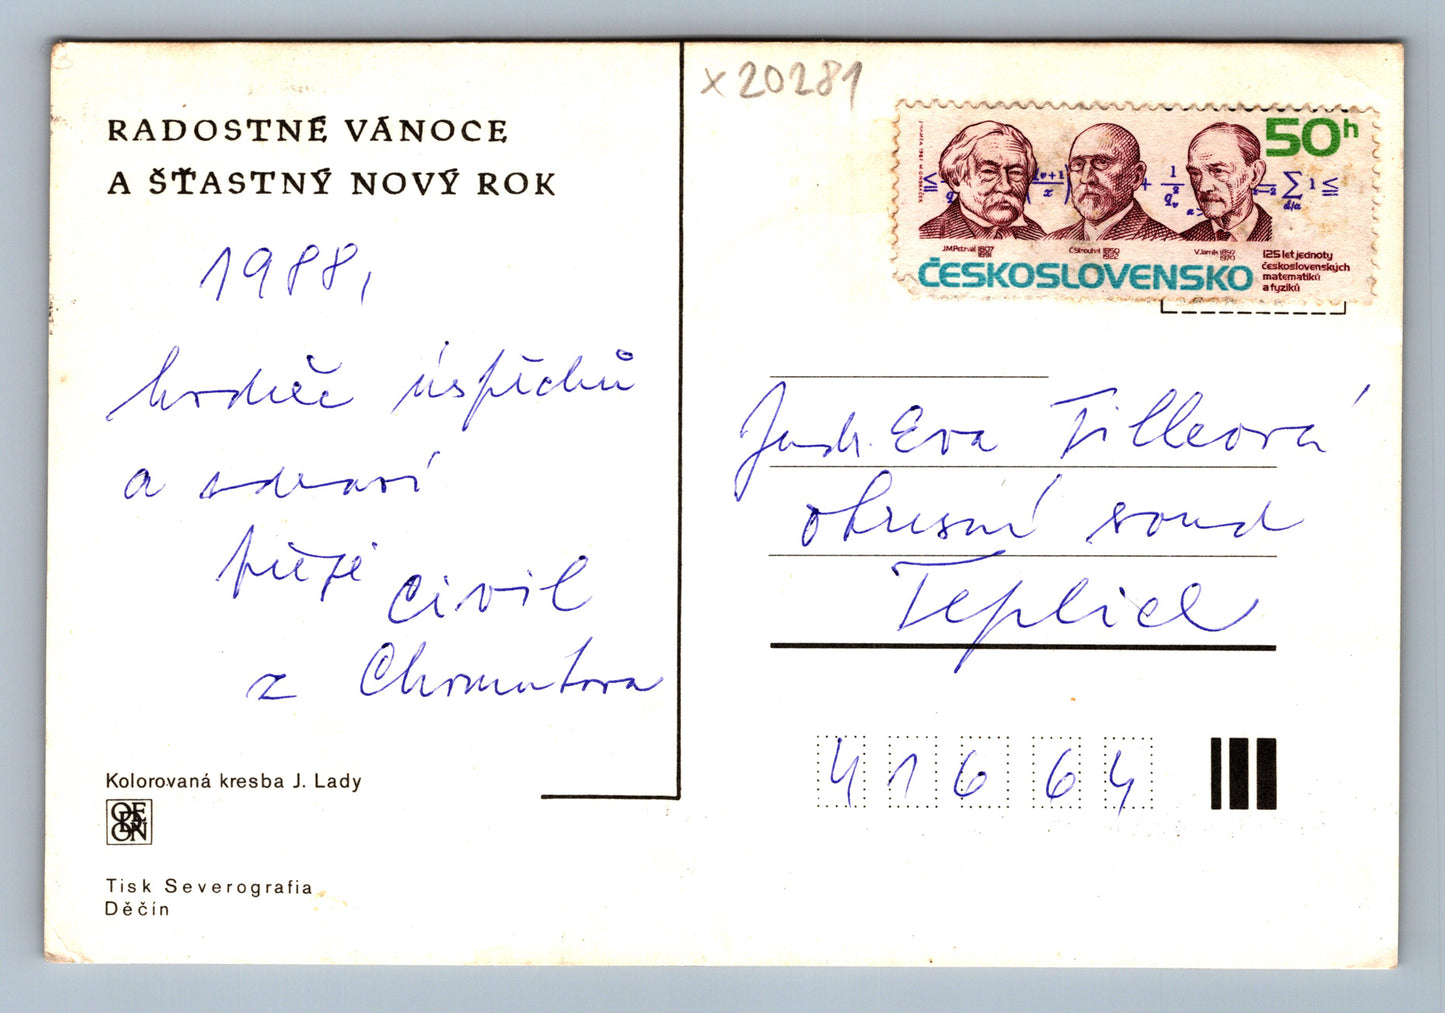 RADOSTNÉ VÁNOCE
A ŠŤASTNÝ NOVÝ ROK
1988,
hodně úspěchů
a zdraví
přeje Civil
z Chomutova
Kolorovaná kresba J. Lady
ODEON
Tisk Severografia
Děčín
x20281
50h
J.M.Petzval 1807 1891
Č.Strouhal 1850 1922
V.Jarník 1897 1970
125 let jednoty
československých
matematiků
a fyziků
ČESKOSLOVENSKO
Judr. Eva Tilleová
okresní soud
Teplice
41664